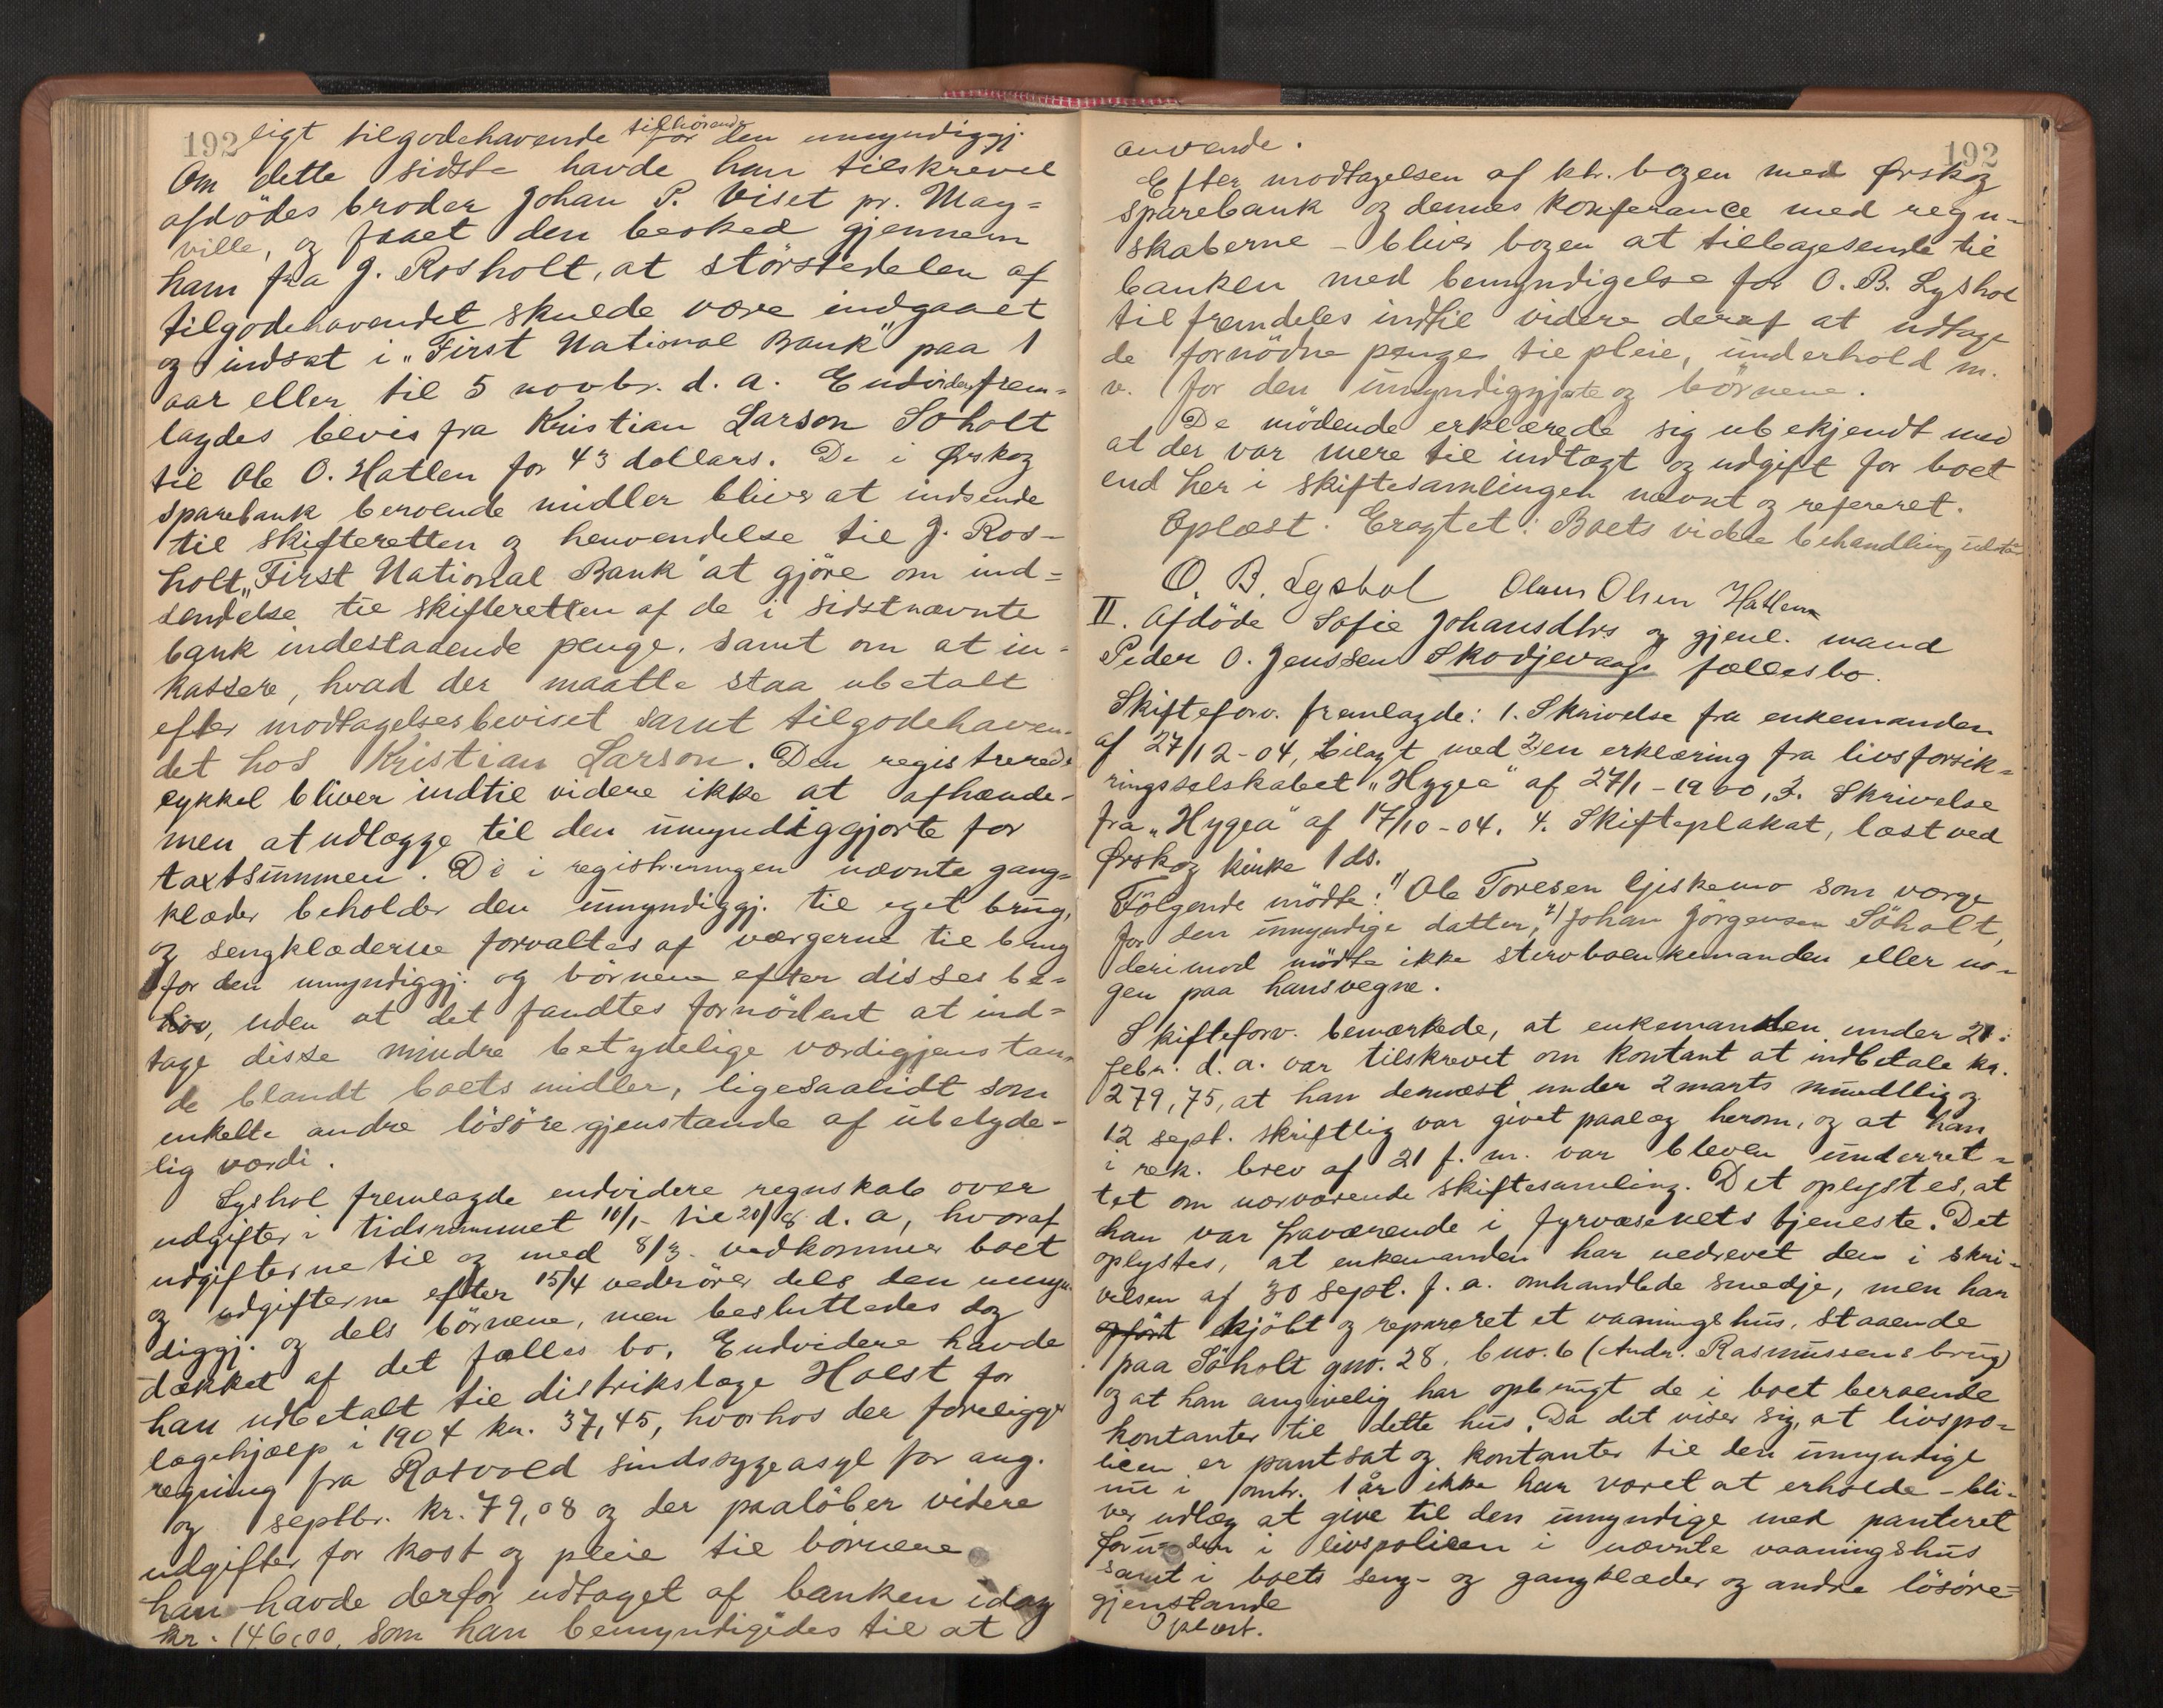 192
ligt tilgodehavende tilhørende for den umyndiggj.
Om dette sidste havde han tilskrevet
afdødes broder Johan P. Viset pr. May=
ville, og faaet den besked gjennem
ham fra J. Rosholt, at størstedelen af
tilgodehavendet skulde være indgaaet
og indsat i „First National Bank" paa 1
aar eller til 5 novbr. d. a. Endvidere frem=
lagdes bevis fra Kristian Larson Søholt
til Ole O. Hatlen for 43 dollars. De i Ørskog
sparebank beroende midler bliver at indsende
til skifteretten og henvendelse til J. Ros-
holt, „First National Bank" at gjøre om ind=
sendelse til skifteretten af de i sidstnævnte
bank indestaaende penge, samt om at in-
kassere, hvad der maatte staa ubetalt
efter modtagelsesbeviset samt tilgodehaven-
det hos Kristian Larson. Den registrerede
cykkel bliver indtil videre ikke at afhænde-
men at udlægge til den umyndiggjorte for
taxtsummen. De i registreringen nævnte gang=
klæder beholder den umyndiggj. til eget brug,
og sengklæderne forvaltes af værgerne til brug
for den umyndiggj. og børnene efter disses be=
hov, uden at det fandtes fornødent at ind=
tage disse mindre betydelige værdigjenstan-
de blandt boets midler, ligesaalidt som
enkelte andre løsøregjenstande af ubetyde-
lig værdi.
Lyshol fremlagde endvidere regnskab over
udgifter i tidsrummet 10/1- til 20/8 d. a, hvoraf
udgifterne til og med 8/3- vedkommer boet
og udgifterne efter 15/4 vedrører dels den umyn-
diggj. og dels børnene, men besluttedes dog
dækket af det fælles bo. Endvidere havde
han udbetalt til distrikslæge Holst for
lægehjælp i 1904 kr. 37,45, hvorhos der foreligger
regning fra Rotvold sindssygeasyl for aug.
og septbr. kr. 79,08 og der paaløber videre
udgifter for kost og pleie til børnene
han havde derfor udtaget af banken idag
kr. 146,00, som han bemyndigedes til at
192
anvende.
Efter modtagelsen af ktr. bogen med Ørskog
sparebank og dennes konferance med regn-
skaberne - bliver bogen at tilbagesende til
banken med bemyndigelse for O. B. Lyshol
til fremdeles indtil videre deraf at udtage
de fornødne penge til pleie, underhold m.
v. for den umyndiggjorte og børnene.
De mødende erklærede sig ubekjendt med
at der var mere til indtægt og udgift for boet
end her i skiftesamlingen nævnt og refereret.
Oplæst. Eragtet: Boets videre behandling udstår
O. B. Lyshol Olaus Olsen Hatlen
II. Afdøde Sofie Johansdtrs og gjenl. mand
Peder O. Jenssen Skodjevaags fællesbo.
Skifteforv. fremlagde: 1. Skrivelse fra enkemanden
af 27/12-04, bilagt med 2) en erklæring fra livsforsik=
ringsselskabet „Hygea" af 27/1-1900, 3. Skrivelse
fra „Hygea" af 17/10-04. 4. Skifteplakat, læst ved
Ørskog kirke 1 ds.
Følgende mødte: 1) Ole Toresen Gjiskemo som værge
for den umyndige datter, 2) Johan Jørgensen Søholt,
derimod mødte ikke stervboenkemanden eller no-
gen paa hans vegne.
Skifteforv. bemærkede, at enkemanden under 21.
febr. d. a. var tilskrevet om kontant at indbetale kr.
279,75, at han dernæst under 2 marts mundtlig og
12 sept. skriftlig var givet paalæg herom, og at han
i rek. brev af 21 f. m. var bleven underret-
tet om nærværende skiftesamling. Det oplystes, at
han var fraværende i fyrvæsenets tjeneste. Det
oplystes, at enkemanden har nedrevet den i skri-
velsen af 30 sept. f. a. omhandlede smedje, men har
opført kjøbt og repareret et vaaningshus, staaende
paa Søholt gno. 28, bno. 6 (Andr. Rasmussens brug)
og at han angivelig har opbrugt de i boet beroende
kontanter til dette hus. Da det viser sig, at livspo-
licen er pantsat og kontanter til den umyndige
nu i omtr. 1 år ikke har været at erholde - bli-
ver udlæg at give til den umyndige med panteret
i livspolicen i nævnte vaaningshus
samt i boets seng- og gangklæder og andre løsøre=
gjenstande
Oplæst.